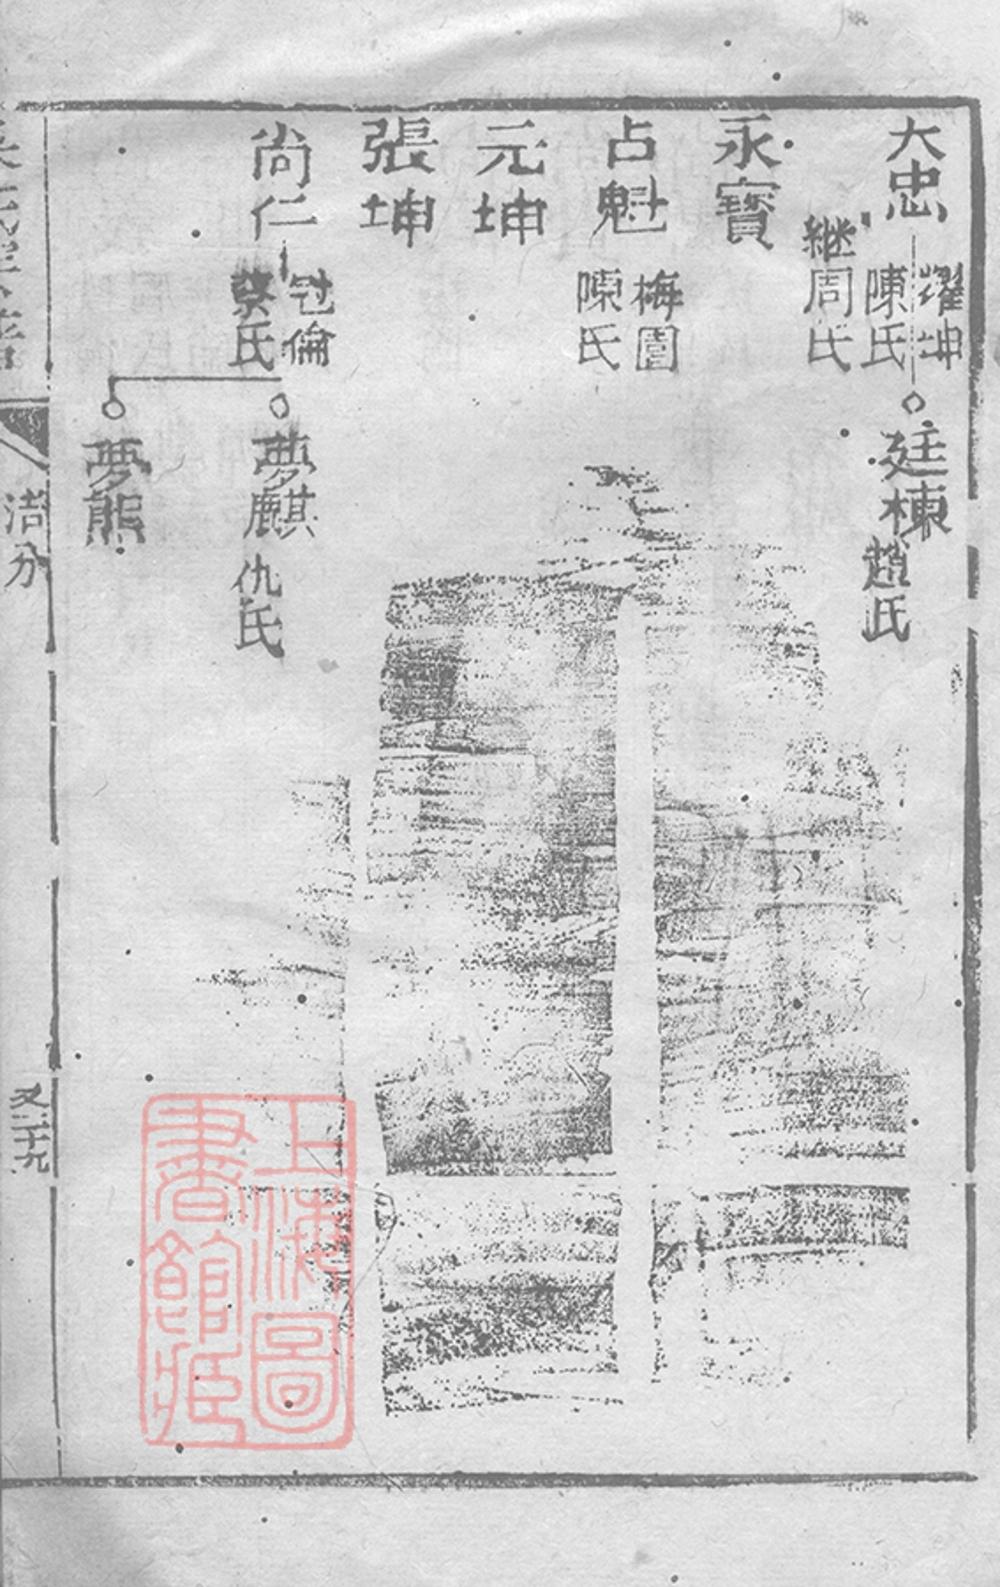 大忠
耀坤
陳氏
繼周氏
廷棟
趙氏
永寶
占魁
梅園
陳氏
元坤
張坤
尚仁
冠倫
蔡氏
夢麒
仇氏
夢熊
洁分
又二十九
上海圖
書館藏